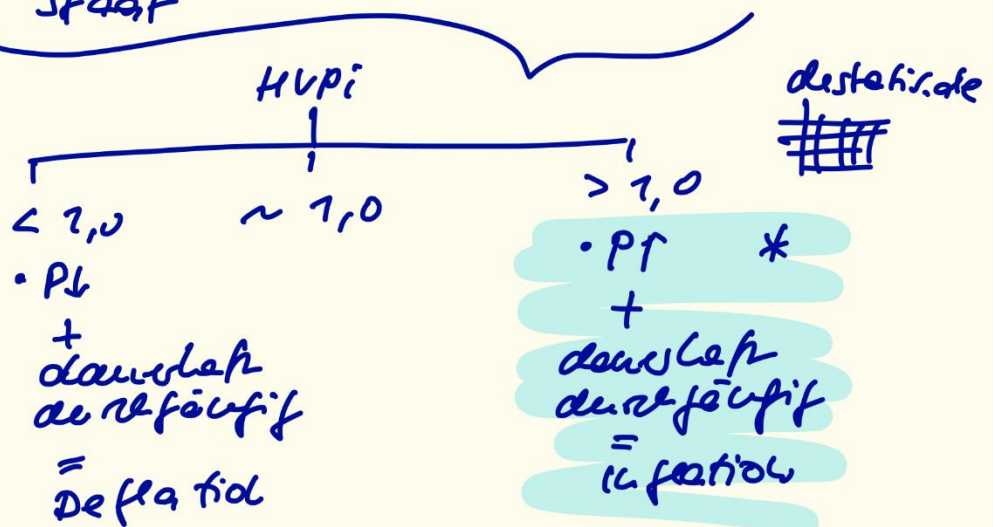 Staat
HVPi
destatis.de
< 1,0
~ 1,0
> 1,0
• P↓
+
dauerhaft
durchgängig
=
Deflation
• P↑ *
+
dauerhaft
durchgängig
=
inflation